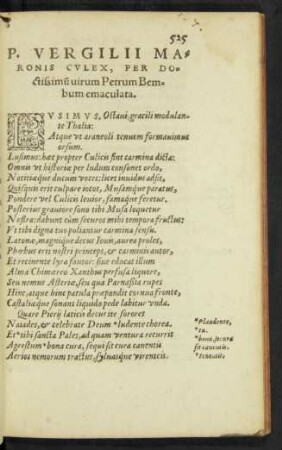 525
P. VERGILII MA-
RONIS CVLEX, PER DO-
ctissimũ uirum Petrum Bem-
bum emaculata.
LVSIMVS, Octaui, gracili modulan-
te Thalia:
Atque ut araneoli tenuem formauimus
orsum.
Lusimus: hæc propter Culicis sint carmina dicta:
Omnis ut historiæ per ludum consonet ordo,
Notitiæque ducum uoces: licet inuidus adsit,
Quisquis erit culpare iocos, Musamque paratus,
Pondere uel Culicis leuior, famaque feretur.
Posterius grauiore sono tibi Musa loquetur
Nostra: dabunt cùm securos mihi tempora fructus:
Vt tibi digna tuo poliantur carmina sensu.
Latonæ, magnique decus Iouis, aurea proles,
Phœbus erit nostri princeps, & carminis autor,
Et recinente lyra fautor: siue educat illum
Alma Chimæreo Xanthus perfusa liquore,
Seu nemus Asteriæ, seu qua Parnasia rupes
Hinc, atque hinc patula præpandit cornua fronte,
Castaliæque sonans liquido pede labitur unda.
Quare Pierij laticis decus ite sorores
Naiades, & celebrate Deum *ludente chorea. *Plaudente,
Et *tibi sancta Pales, ad quam uentura recurrit *tu.
Agrestum *bona cura, sequi sit cura canentis *bona, secura
sit canentis.
Aerios nemorum tractus, syluasque uirentes. *tenentis.